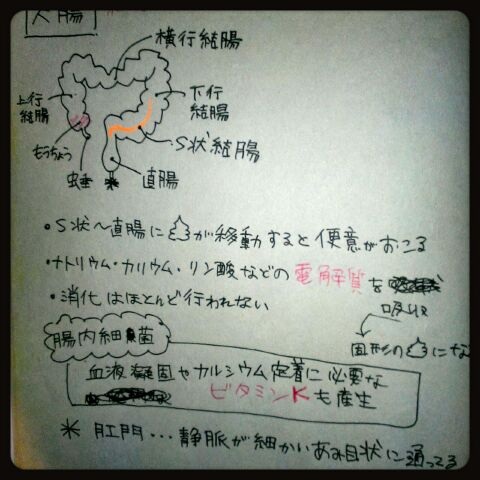 大腸
横行結腸
上行
結腸
下行
結腸
S状結腸
もうちょう
虫垂
*
直腸
・S状〜直腸に💩が移動すると便意がおこる
・ナトリウム・カリウム・リン酸などの電解質を
吸収
・消化はほとんど行われない
固形の💩にな
腸内細菌
血液凝固やカルシウム定着に必要な
ビタミンKも産生
* 肛門…静脈が細かいあみ目状に通ってる